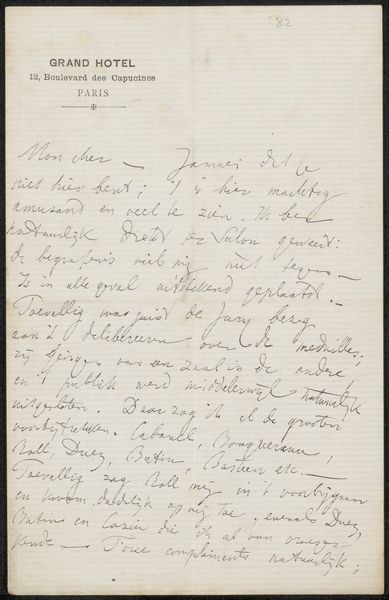 82
GRAND HOTEL
12, Boulevard des Capucines
PARIS
Mon cher — Jammer dat je
niet hier bent; 't is hier machtig
amusand en veel te zien. Ik ben
natuurlijk direct de Salon geweest:
de begrafenis viel mij niet tegen —
Is in alle geval uitstekend geplaatst. —
Toevallig was juist de Jury bezig
aan 't delibereeren over de medailles;
zij gingen van een zaal in de andere,
en 't publiek werd middelerwijl natuurlijk
uitgesloten. Daar zag ik al de grooten
voorbijtrekken. Cabanel, Bouguereau,
Roll, Duez, Butin, Bastien etc. —
Toevallig zag Roll mij in 't voorbijgaan
en kwam dadelijk op mij toe, evenals Duez,
Butin en Cazin die ik al van vroeger
kende — Force complimenten natuurlijk;